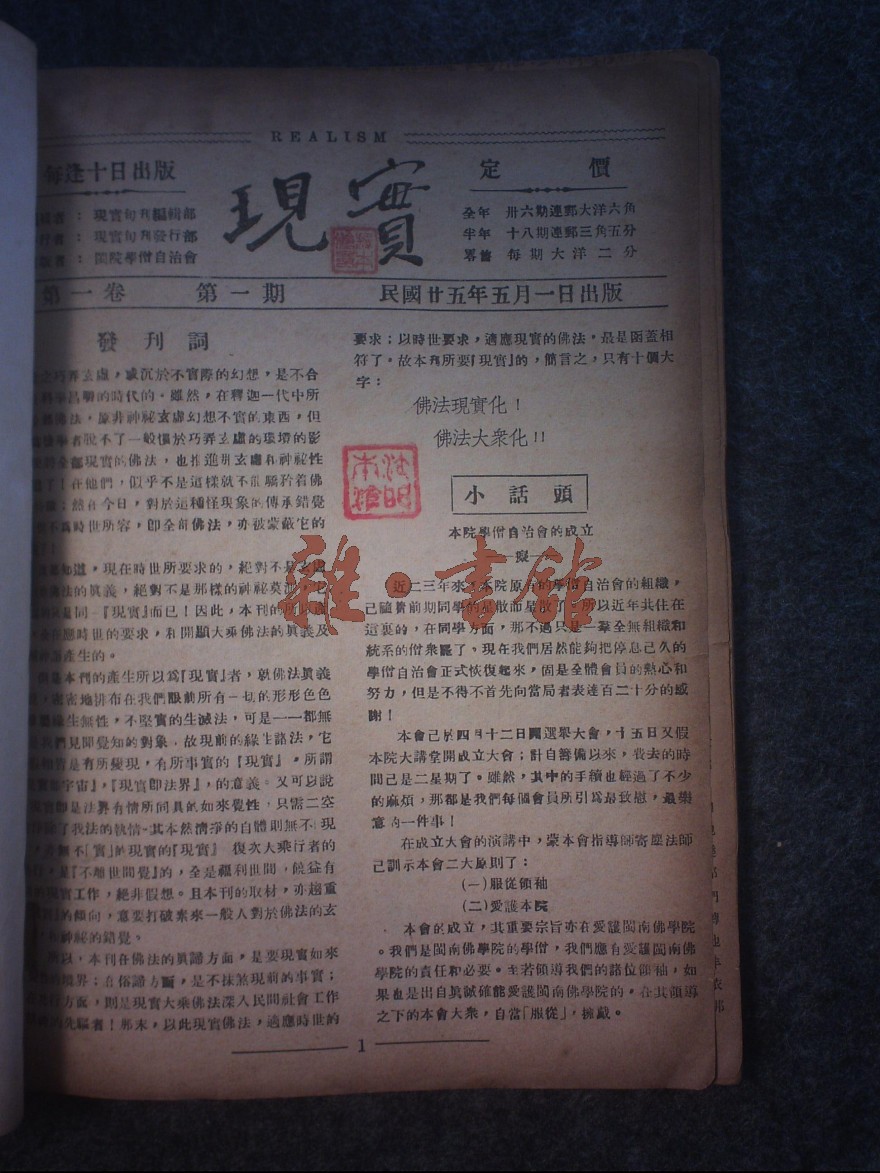 REALISM
每逢十日出版
現實
定價
者：現實旬刊編輯部
行者：現實旬刊發行部
者：閩院學僧自治會
全年 卅六期連郵大洋六角
半年 十八期連郵三角五分
零售 每期大洋二分
第一卷 第一期 民國廿五年五月一日出版
發刊詞
之巧弄玄虛，或沉於不實際的幻想，是不合
科學昌明的時代的。雖然，在釋迦一代中所
佛法，原非神祕玄虛幻想不實的東西，但
學者脫不了一般慣於巧弄玄虛的環境的影
全部現實的佛法，也推進到玄虛和神祕性
了！在他們，似乎不是這樣就不能驕矜着佛
；然在今日，對於這種怪現象的傳承錯覺
不為時世所容，卽全部佛法，亦被蒙蔽它的
！
知道，現在時世所要求的，絕對不是玄虛
佛法的眞義，絕對不是那樣的神祕莫測，它
同一『現實』而已！因此，本刊的所以
應時世的要求，和開顯大乘佛法的眞義及
產生的。
是本刊的產生所以爲『現實』者，就佛法眞義
密地排布在我們眼前所有一切的形形色色
緣生無性，不堅實的生滅法，可是一一都無
我們見聞覺知的對象，故現前的緣生諸法，它
是有所變現，有所事實的『現實』。所謂
宇宙』，『現實卽法界』，的意義。又可以說
卽是法界有情所同具的如來覺性，只需二空
了我法的執情，其本然清淨的自體則無不『現
無不『實』的現實的『現實』。復次大乘行者的
，是『不離世間覺』的，全是福利世間，饒益有
的現實工作，絕非假想。且本刊的取材，亦趨重
的傾向，意要打破素來一般人對於佛法的玄
神祕的錯覺。
所以，本刊在佛法的眞諦方面，是要現實如來
境界；在俗諦方面，是不抹煞現前的事實；
方面，則是現實大乘佛法深入民間社會工作
的先驅者！那末，以此現實佛法，適應時世的
要求；以時世要求，適應現實的佛法，最是函蓋相
符了。故本刊所要『現實』的，簡言之，只有十個大
字：
佛法現實化！
佛法大衆化！！
小話頭
本院學僧自治會的成立
近二三年來，本院原有的學僧自治會的組織，
己隨着前期同學的星散而星散了。所以近年共住在
這裏的，在同學方面，那不過只是一羣全無組織和
統系的僧衆罷了。現在我們居然能夠把停息己久的
學僧自治會正式恢復起來，固是全體會員的熱心和
努力，但是不得不首先向當局者表達百二十分的感
謝！
本會己於四月十二日開選舉大會，十五日又假
本院大講堂開成立大會；計自籌備以來，費去的時
間己是二星期了。雖然，其中的手續也經過了不少
的麻煩，那都是我們每個會員所引爲最致慰，最樂
意的一件事！
在成立大會的演講中，蒙本會指導師寄塵法師
己訓示本會二大原則了：
(一)服從領袖
(二)愛護本院
本會的成立，其重要宗旨亦在愛護閩南佛學院
。我們是閩南佛學院的學僧，我們應有愛護閩南佛
學院的責任和必要。至若領導我們的諸位領袖，如
果也是出自眞誠確能愛護閩南佛學院的，在其領導
之下的本會大衆，自當「服從」，擁戴。
1
雜·書館